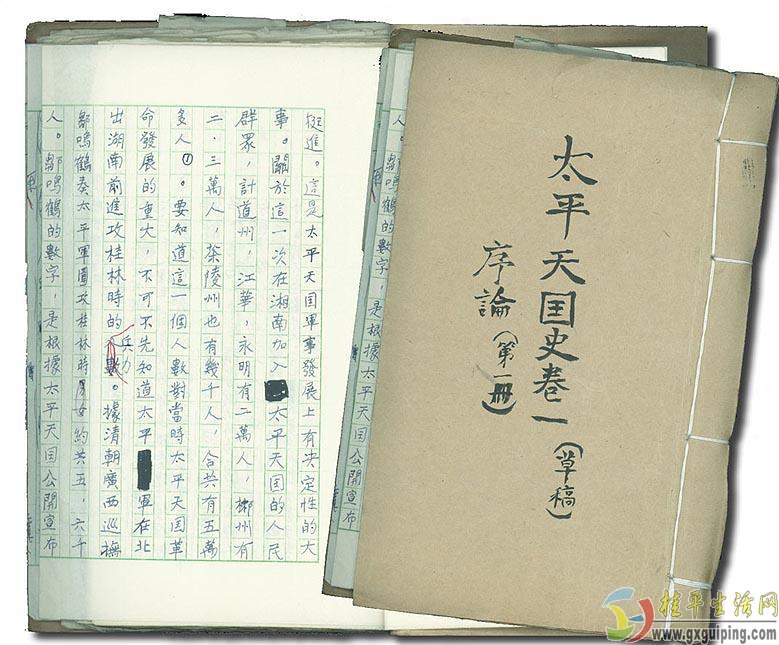 挺進。這是太平天囯軍事發展上有決定性的大
事。關於這一次在湘南加入太平天囯的人民
群眾，計道州，江華，永明有二萬人，郴州有
二、三萬人，茶陵州也有幾千人，合共有五萬
多人①。要知道這一個人數對當時太平天囯革
命發展的重大，不可不先知道太平軍在北
出湖南前進攻桂林時的兵力。據清朝廣西巡撫
鄒鳴鶴奏太平軍圍攻桂林時男女約共五，六千
人。鄒鳴鶴的數字，是根據太平天囯公開宣布
太平天囯史卷一（草稿）
序論（第一冊）
人。鄒鳴鶴的數字，是根據太平天囯公開宣布
桂平生活网
www.gxguiping.com